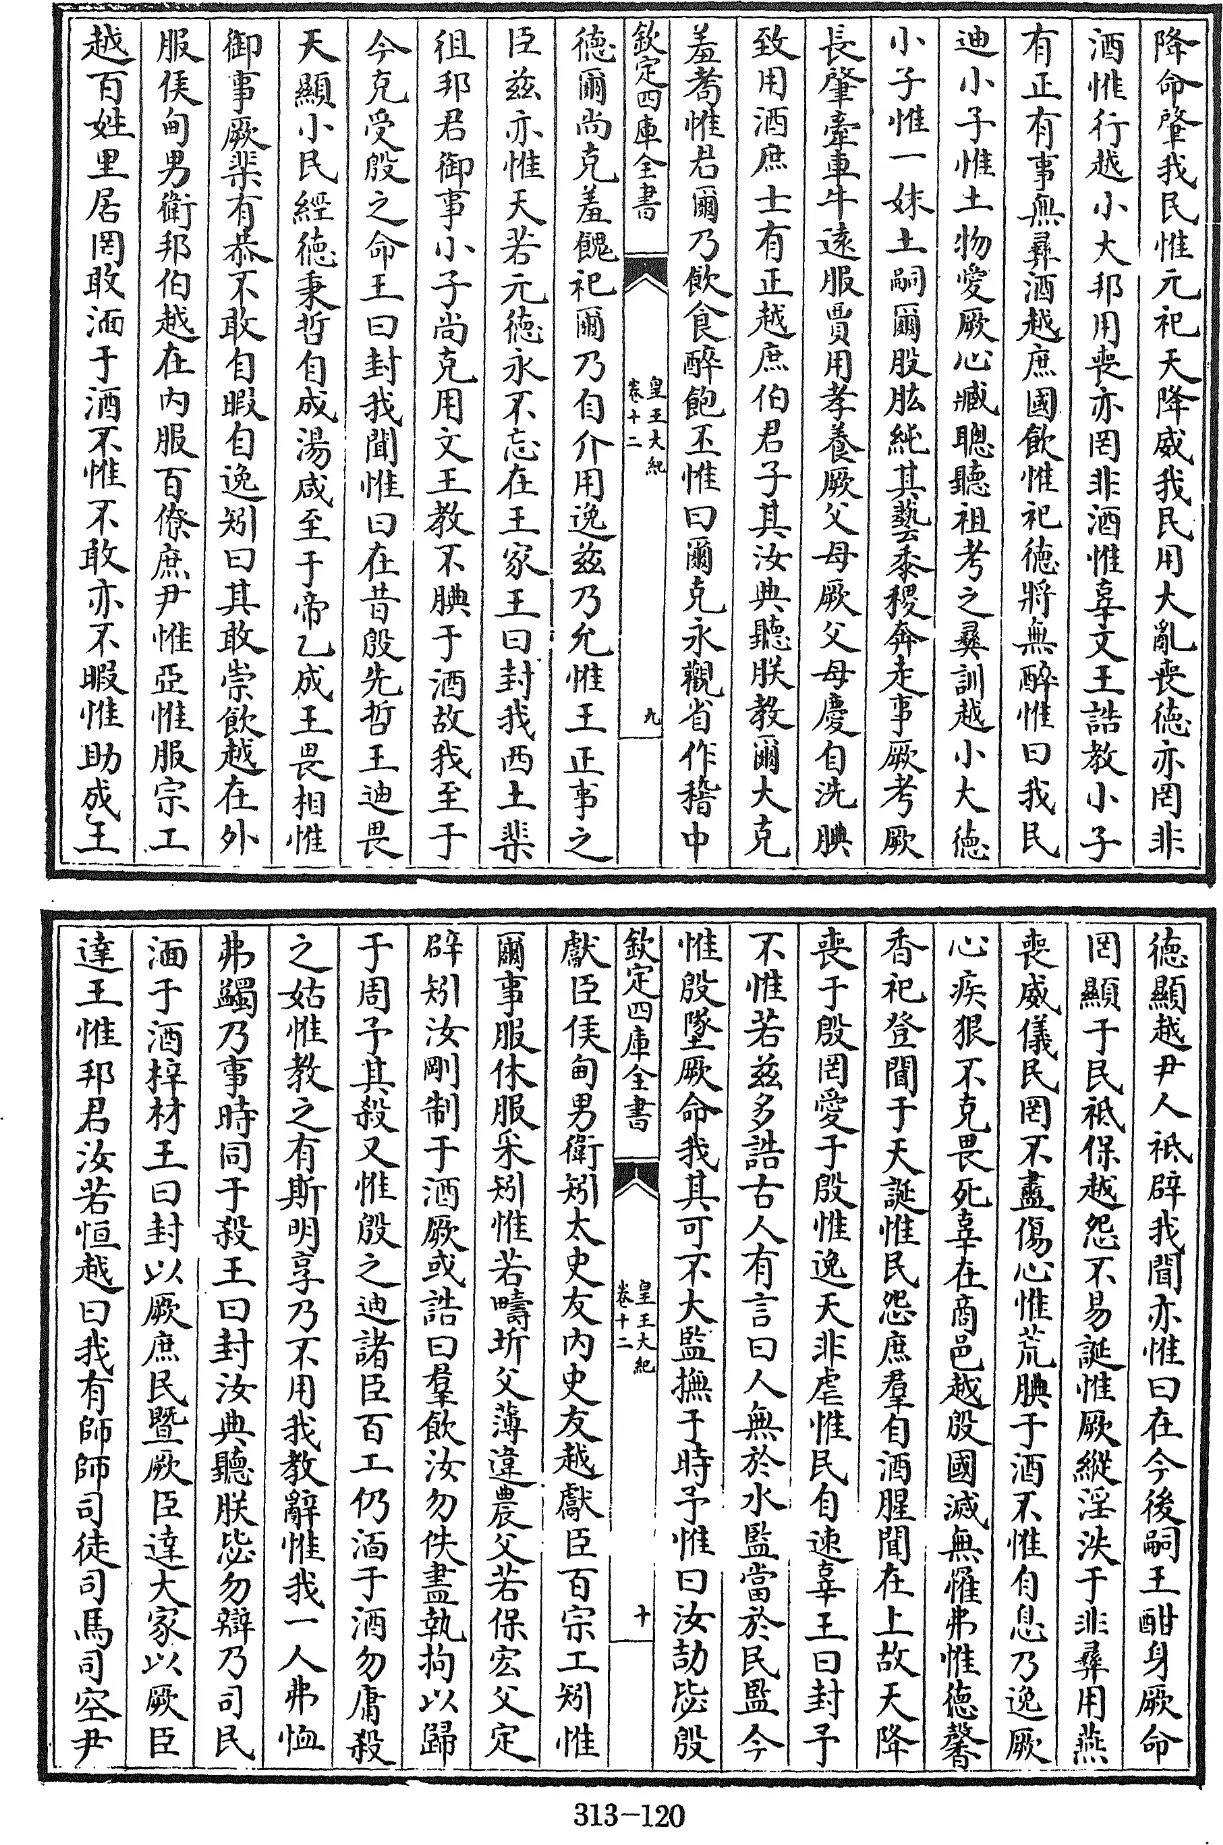 降命肇我民惟元祀天降威我民用大亂喪德亦罔非
酒惟行越小大邦用喪亦罔非酒惟辜文王誥教小子
有正有事無彞酒越庶國飲惟祀德將無醉惟曰我民
迪小子惟土物愛厥心臧聰聽祖考之彞訓越小大德
小子惟一妹土嗣爾股肱純其藝黍稷奔走事厥考厥
長肇牽車牛遠服賈用孝養厥父母厥父母慶自洗腆
致用酒庶士有正越庶伯君子其汝典聽朕教爾大克
羞耇惟君爾乃飲食醉飽丕惟曰爾克永觀省作稽中
欽定四庫全書
皇王大紀
卷十二
九
德爾尚克羞饋祀爾乃自介用逸兹乃允惟王正事之
臣兹亦惟天若元德永不忘在王家王曰封我西土棐
徂邦君御事小子尚克用文王教不腆于酒故我至于
今克受殷之命王曰封我聞惟曰在昔殷先哲王迪畏
天顯小民經德秉哲自成湯咸至于帝乙成王畏相惟
御事厥棐有恭不敢自暇自逸矧曰其敢崇飲越在外
服侯甸男衛邦伯越在内服百僚庶尹惟亞惟服宗工
越百姓里居罔敢湎于酒不惟不敢亦不暇惟助成王
德顯越尹人祗辟我聞亦惟曰在今後嗣王酣身厥命
罔顯于民祗保越怨不易誕惟厥縱淫泆于非彞用燕
喪威儀民罔不盡傷心惟荒腆于酒不惟自息乃逸厥
心疾狠不克畏死辜在商邑越殷國滅無罹弗惟德馨
香祀登聞于天誕惟民怨庶羣自酒腥聞在上故天降
喪于殷罔愛于殷惟逸天非虐惟民自速辜王曰封予
不惟若兹多誥古人有言曰人無於水監當於民監今
惟殷墜厥命我其可不大監撫于時予惟曰汝劼毖殷
欽定四庫全書
皇王大紀
卷十二
十
獻臣侯甸男衛矧太史友内史友越獻臣百宗工矧惟
爾事服休服采矧惟若疇圻父薄違農父若保宏父定
辟矧汝剛制于酒厥或誥曰羣飲汝勿佚盡執拘以歸
于周予其殺又惟殷之迪諸臣百工仍湎于酒勿庸殺
之姑惟教之有斯明享乃不用我教辭惟我一人弗恤
弗蠲乃事時同于殺王曰封汝典聽朕毖勿辯乃司民
湎于酒梓材王曰封以厥庶民暨厥臣達大家以厥臣
達王惟邦君汝若恒越曰我有師師司徒司馬司空尹
313-120